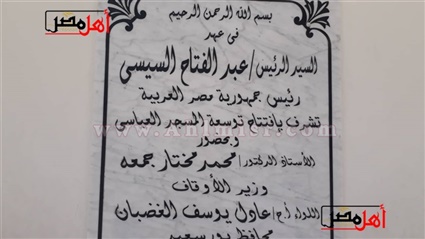 بسم الله الرحمن الرحيم
فى عهد
السيد الرئيس/عبد الفتاح السيسى
رئيس جمهورية مصر العربية
تشرف بافتتاح توسعة المسجد العباسى
وبحضور
الأستاذ الدكتور/محمد مختار جمعه
وزير الأوقاف
اللواء أ.ح/عادل يوسف الغضبان
محافظ بورسعيد
أهل مصر
أهل مصر
www.Ahlmisr.com